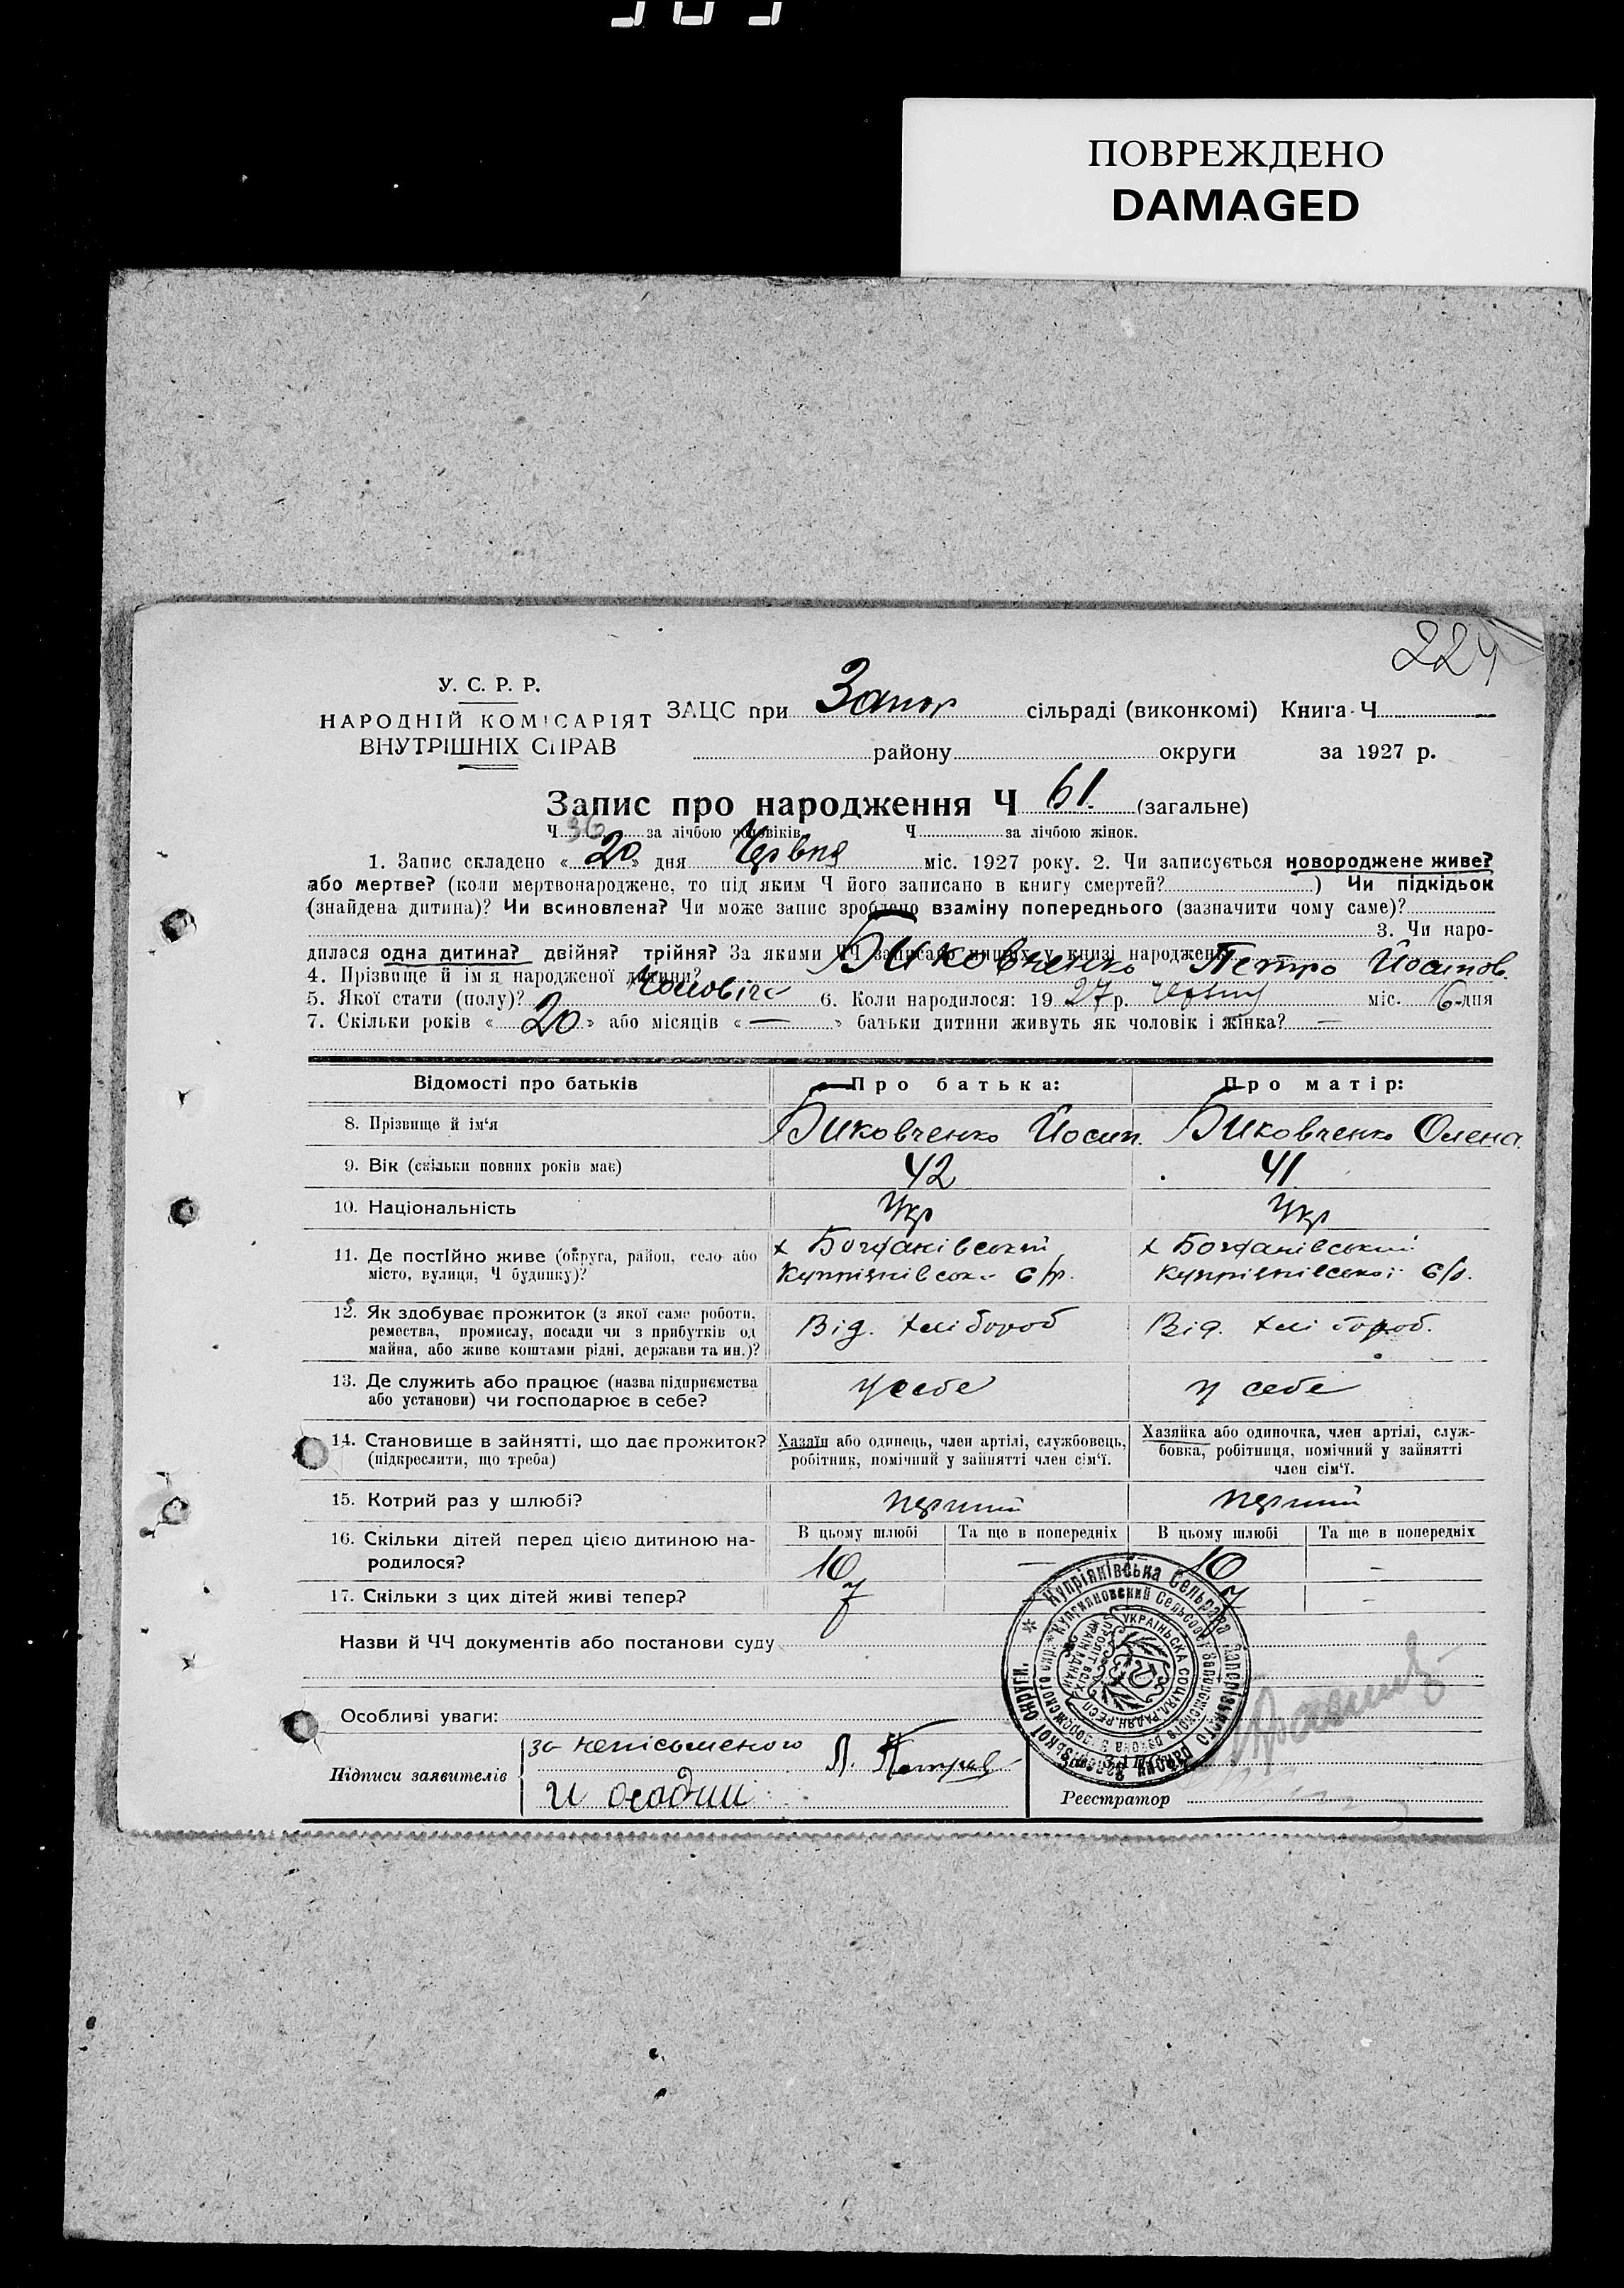 ПОВРЕЖДЕНО
DAMAGED
224
У. С. Р. Р.
НАРОДНІЙ КОМІСАРІЯТ
ВНУТРІШНІХ СПРАВ
ЗАЦС при Запор сільраді (виконкомі) Книга Ч
району округи за 1927 р.
Запис про народження Ч 61. (загальне)
Ч 36 за лічбою чоловіків Ч за лічбою жінок.
1. Запис складено «20» дня Червня міс. 1927 року. 2. Чи записується новороджене живе?
або мертве? (коли мертвонароджене, то під яким Ч його записано в книгу смертей? ) Чи підкідьок
(знайдена дитина)? Чи всиновлена? Чи може запис зроблено взаміну попереднього (зазначити чому саме)?
3. Чи наро-
дилася одна дитина? двійня? трійня? За якими ЧЧ записано инших у книзі народжень
4. Прізвище й ім'я народженої дитини? Биковченко Петро Йосипов.
5. Якої стати (полу)? Чоловіч 6. Коли народилося: 1927 р. Червня міс. 6 дня
7. Скільки років «20» або місяців «—» батьки дитини живуть як чоловік і жінка? —
Відомості про батьків Про батька: Про матір:
8. Прізвище й ім'я Биковченко Йосип. Биковченко Олена
9. Вік (скільки повних років має) 42 41
10. Національність Укр Укр
11. Де постійно живе (округа, район, село або х Богданівський х Богданівський
місто, вулиця, Ч будинку)? Купріянівськ. С/р. Купріянівської С/р.
12. Як здобуває прожиток (з якої саме роботи,
ремества, промислу, посади чи з прибутків од Від. хлібороб Від. хлібороб.
майна, або живе коштами рідні, держави та ин.)?
13. Де служить або працює (назва підприємства у себе у себе
або установи) чи господарює в себе?
14. Становище в зайнятті, що дає прожиток? Хазяїн або одинець, член артілі, службовець, Хазяйка або одиночка, член артілі, служ-
(підкреслити, що треба) робітник, помічний у зайнятті член сім'ї. бовка, робітниця, помічний у зайнятті
член сім'ї.
15. Котрий раз у шлюбі? перший перший
16. Скільки дітей перед цією дитиною на- В цьому шлюбі Та ще в попередніх В цьому шлюбі Та ще в попередніх
родилося? 10 — 10 -
17. Скільки з цих дітей живі тепер? 7 7 -
Назви й ЧЧ документів або постанови суду
Купріяківська Сельрада Запорізького району Запорізької округи.
УКРАЇНСЬКА СОЦІЯЛ. РАДЯН. РЕСП.
Особливі уваги:
Підписи заявителів за неписьменого Л. Петров
Реєстратор